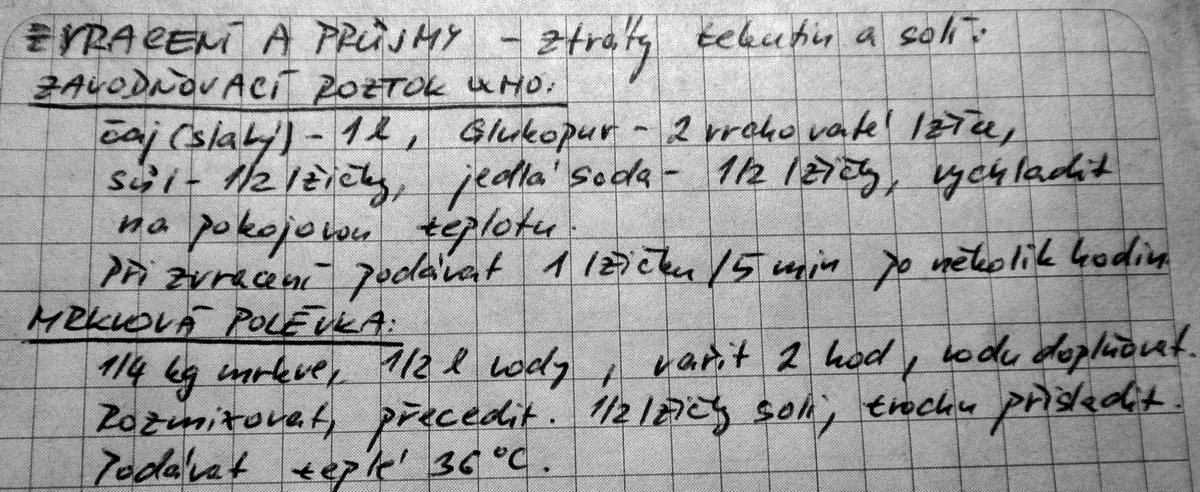 ZVRACENÍ A PRŮJMY - ztráty tekutin a solí:
ZAVODŇOVACÍ ROZTOK WHO:
čaj (slabý) - 1 l, Glukopur - 2 vrchovaté lžíce,
sůl - 1/2 lžičky, jedlá soda - 1/2 lžičky, vychladit
na pokojovou teplotu.
Při zvracení podávat 1 lžičku /5 min po několik hodin.
MRKVOVÁ POLÉVKA:
1/4 kg mrkve, 1/2 l vody, vařit 2 hod, vodu doplňovat.
Rozmixovat, přecedit. 1/2 lžičky soli, trochu přisladit.
Podávat teplé 36°C.